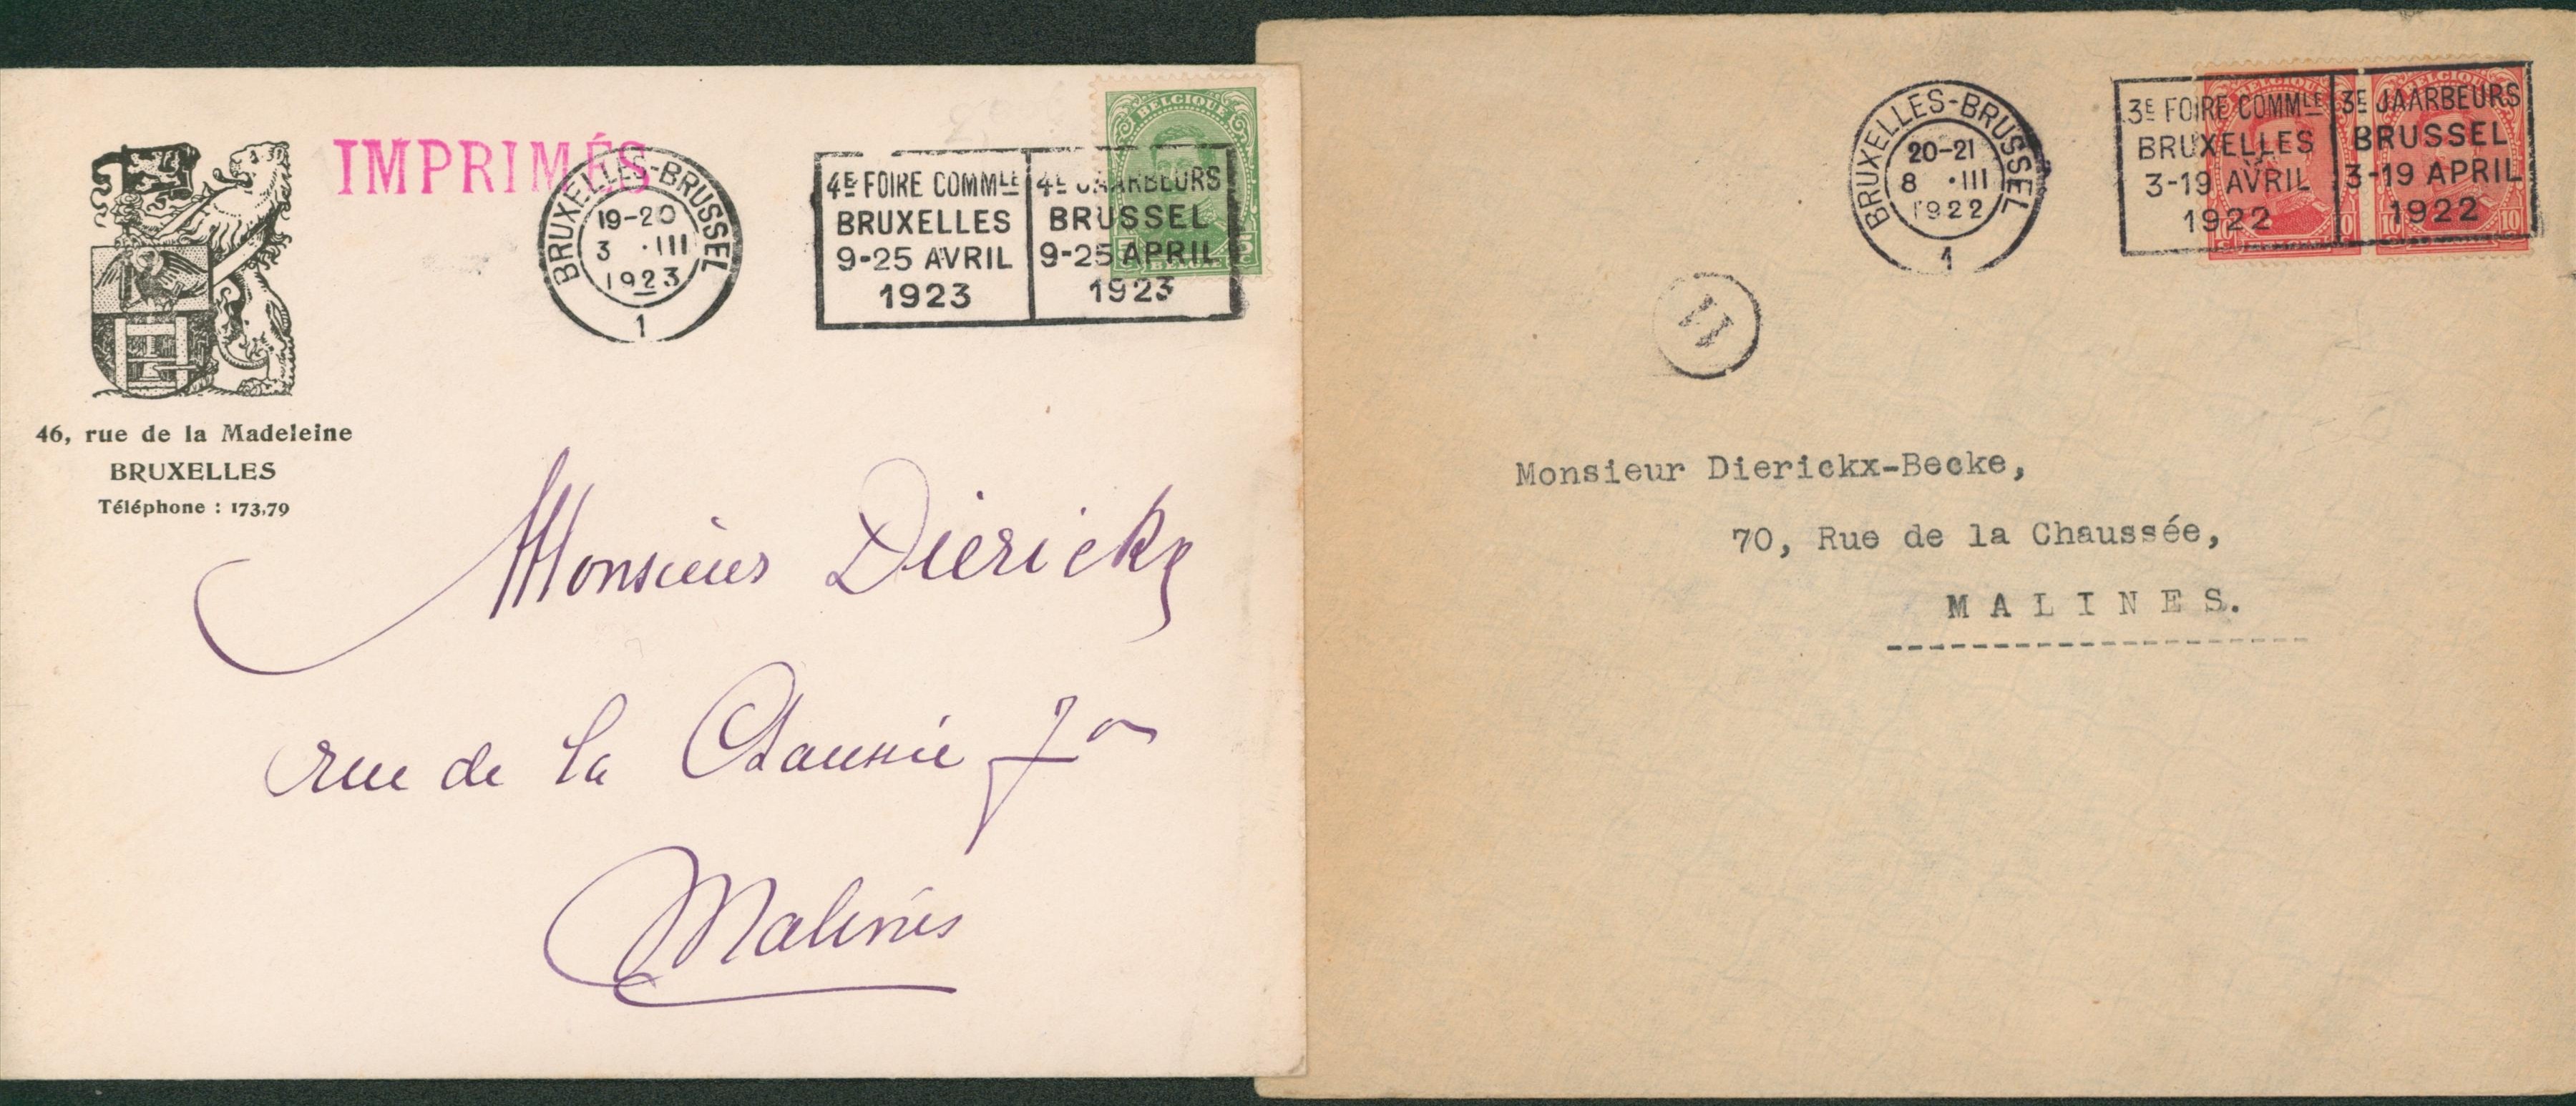 IMPRIMÉS
BRUXELLES-BRUSSEL
19-20
3 ·III
1923
1
4E FOIRE COMMLE
BRUXELLES
9-25 AVRIL
1923
4E JAARBEURS
BRUSSEL
9-25 APRIL
1923
BELGIQUE
5
BELGIË
46, rue de la Madeleine
BRUXELLES
Téléphone : 173,79
Monsieur Dierickx
rue de la Chaussée 70
Malines
BRUXELLES-BRUSSEL
20-21
8 ·III
1922
1
3E FOIRE COMMLE
BRUXELLES
3-19 AVRIL
1922
3E JAARBEURS
BRUSSEL
3-19 APRIL
1922
BELGIQUE
BELGIQUE
10
10
10
11
Monsieur Dierickx-Becke,
70, Rue de la Chaussée,
MALINES.